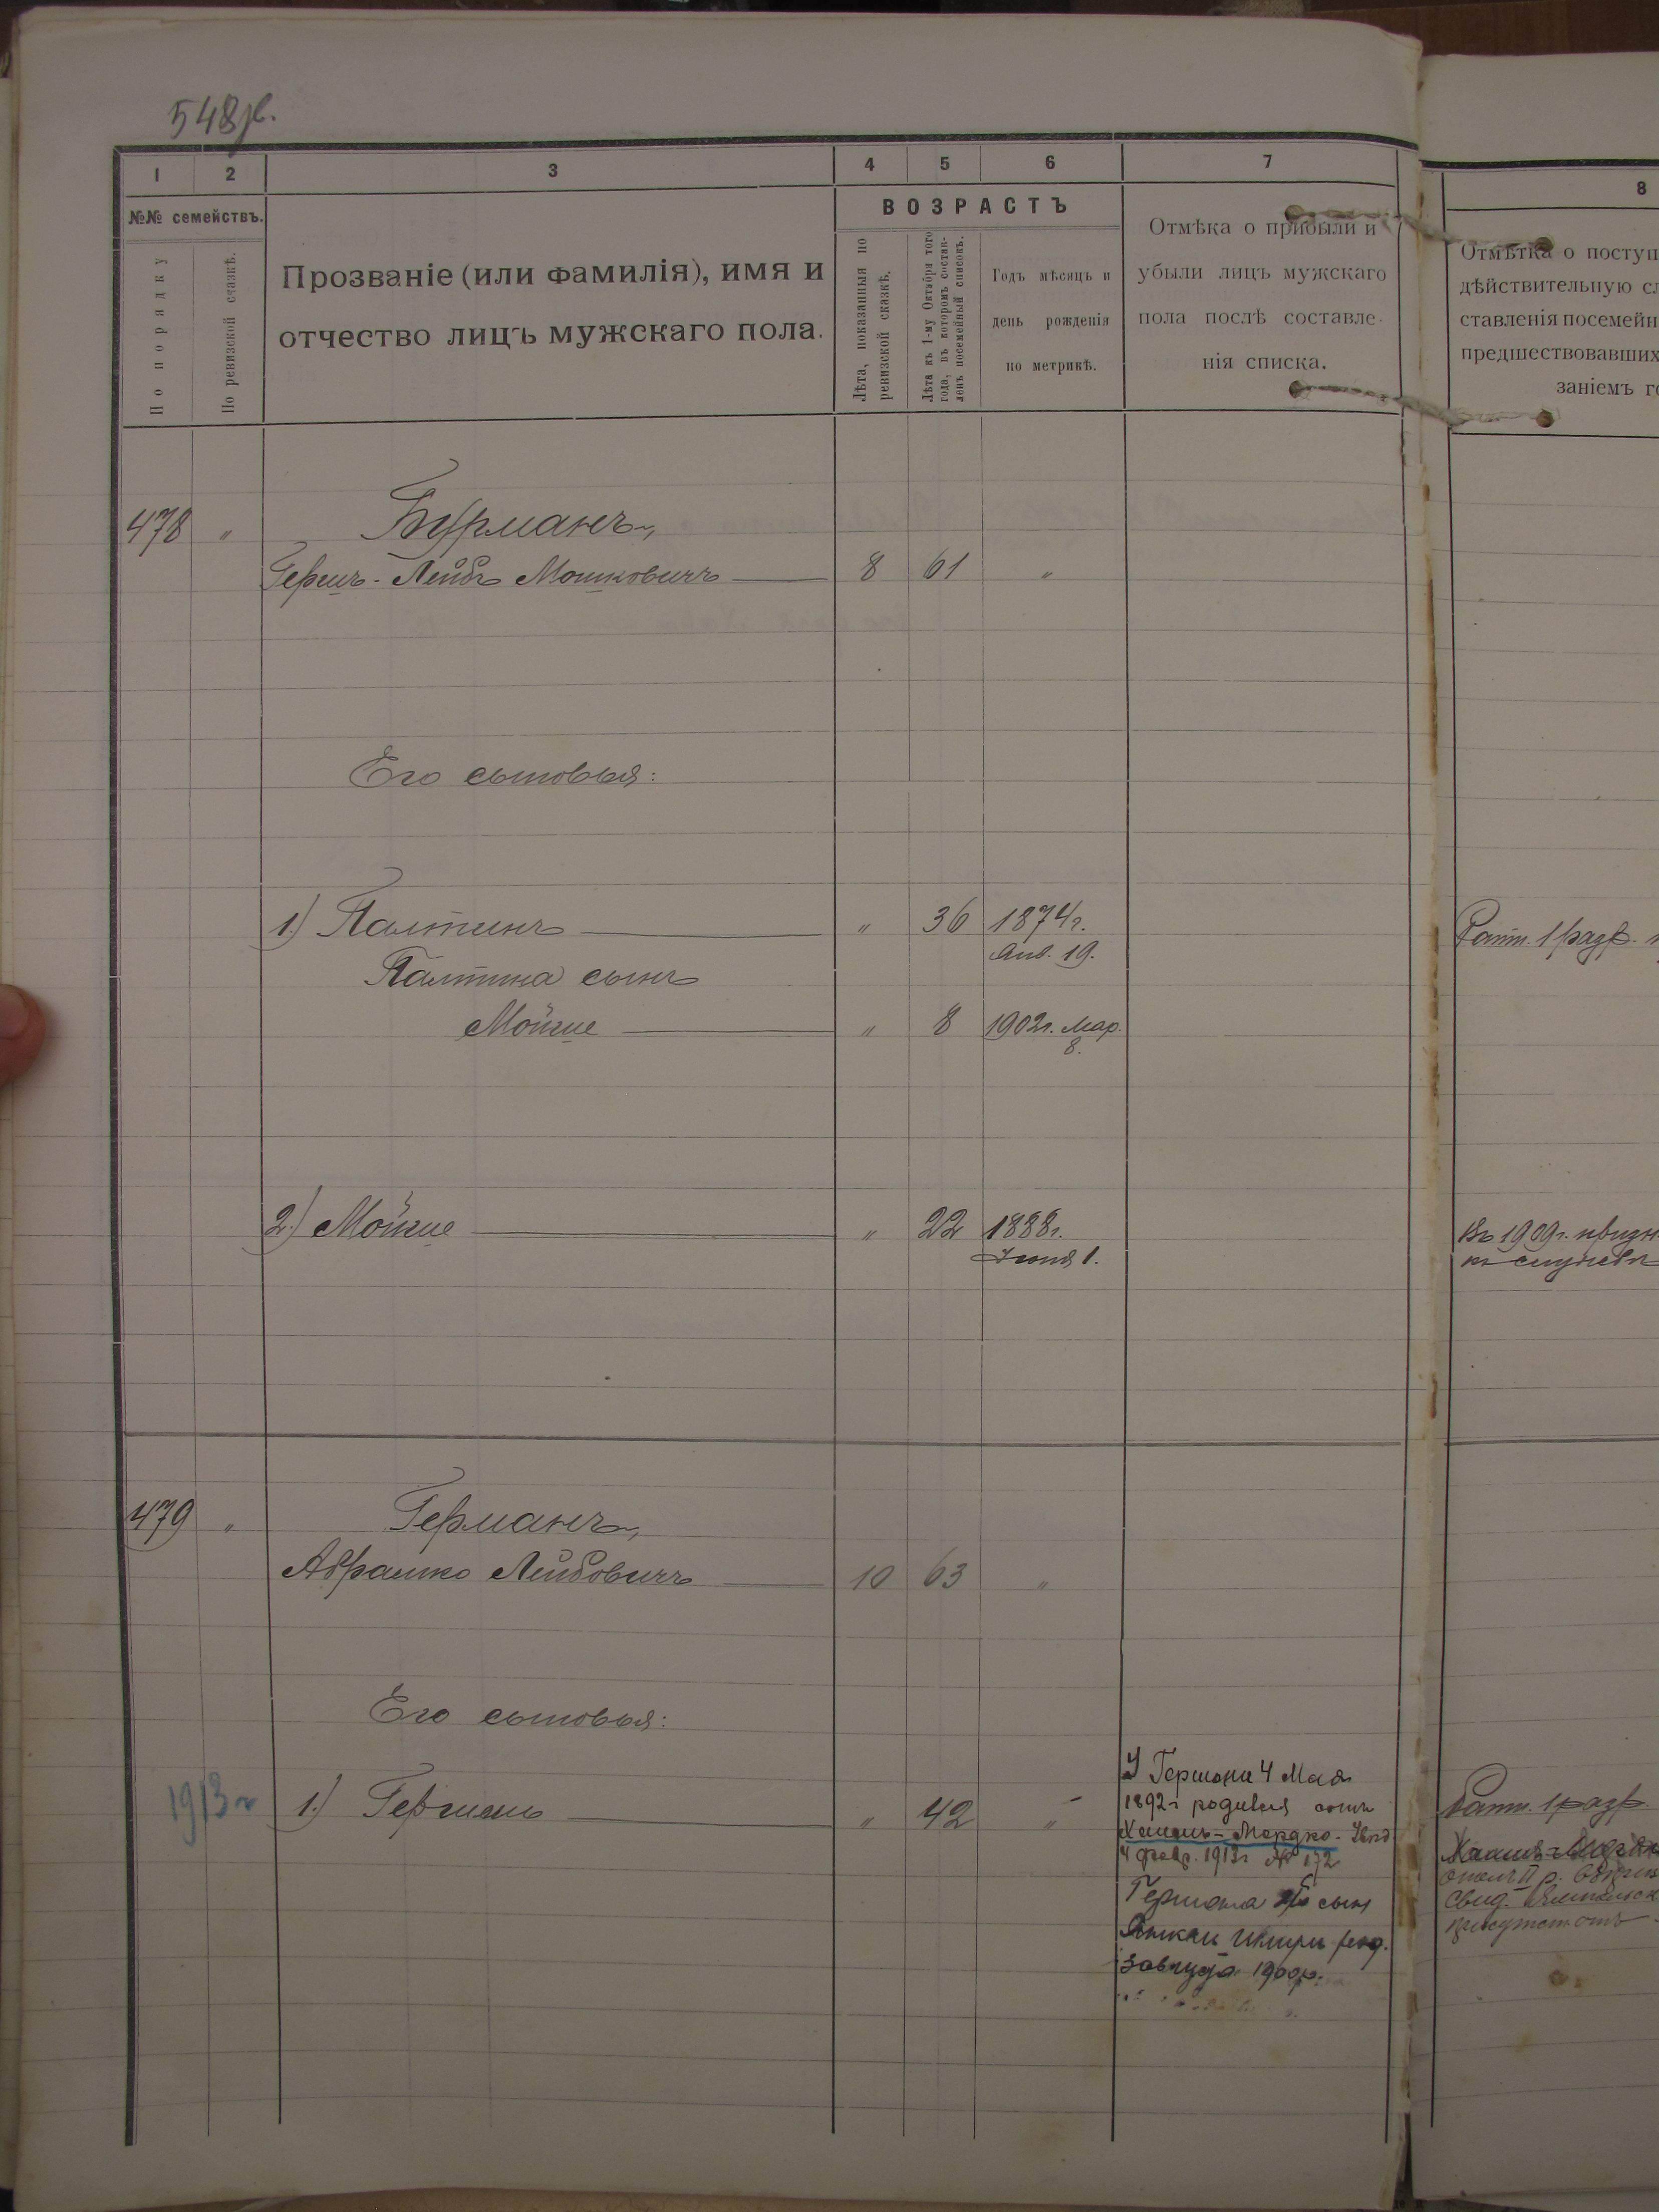 548
1 2 3 4 5 6 7 8
№№ семействъ.
По порядку
По ревизской сказкѣ.
Прозваніе (или фамилія), имя и
отчество лицъ мужскаго пола.
ВОЗРАСТЪ
Лѣта, показанныя по
ревизской сказкѣ.
Лѣта къ 1-му Октября того
года, въ которомъ состав-
ленъ посемейный списокъ.
Годъ мѣсяцъ и
день рожденія
по метрикѣ.
Отмѣка о прибыли и
убыли лицъ мужскаго
пола послѣ составле-
нія списка.
Отмѣтка о поступ
дѣйствительную сл
ставленія посемейн
предшествовавших
заніемъ го
478 " Бурманъ,
Гершъ-Лейбъ Мошковичъ 8 61 "
Его сыновья:
1.) Палтинъ " 36 1874г.
Янв. 19.
Ратн. 1 разр.
Палтина сынъ
Мойше " 8 1902г. Мар.
8.
2.) Мойше " 22 1888г.
Іюня 1.
Въ 1909г. призн
къ службѣ
479 " Германъ,
Абрамко Лейбовичъ 10 63 "
Его сыновья:
1913г 1.) Гершонъ " 42 "
У Гершона 4 Мая
1892г родился сынъ
Мордко.
4 февр. 1913г № 172
Гершона сынъ
1900г.
Ратн. 1 разр.